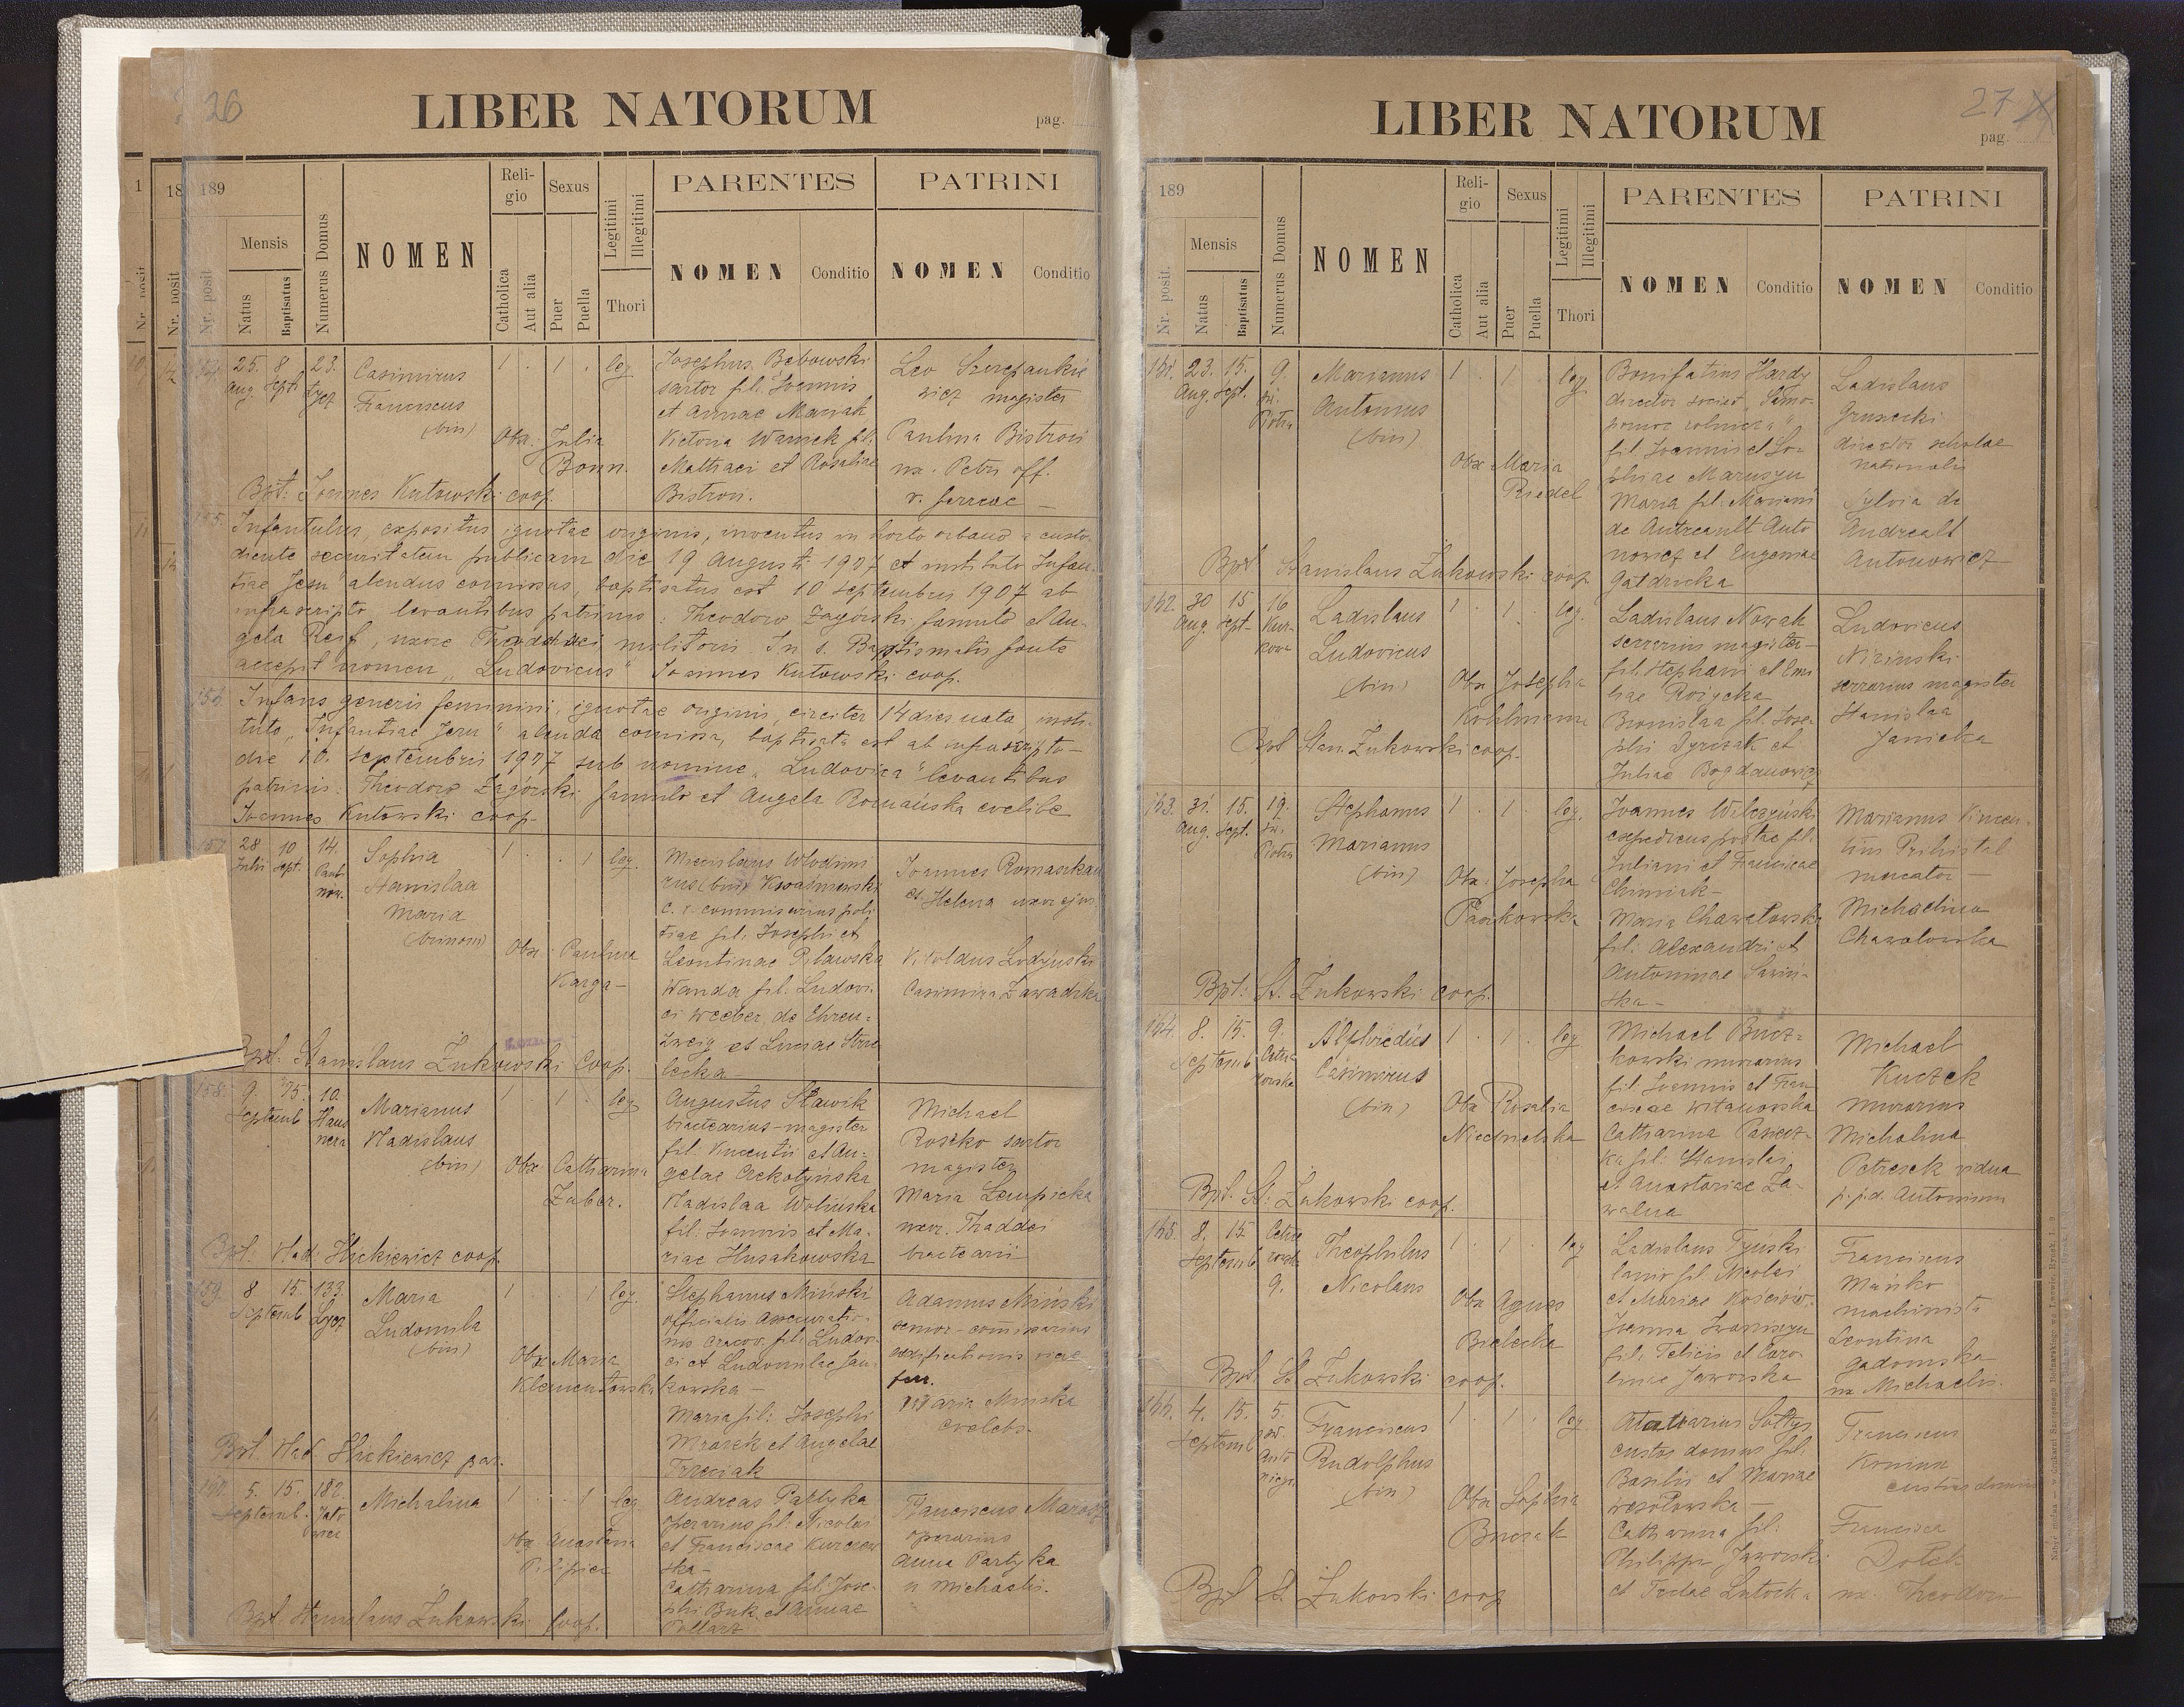 26
LIBER NATORUM
pag.
189
Nr. posit
Mensis
Natus
Baptisatus
Numerus Domus
NOMEN
Religio
Catholica
Aut alia
Sexus
Puer
Puella
Legitimi
Illegitimi
Thori
PARENTES
NOMEN
Conditio
PATRINI
NOMEN
Conditio
25. 8 23.
Aug. Sept. Łycz
Casimirus
Franciscus
(bin)
1 . 1 . leg.
Obx. Julia
Bonn.
Josephus Bąbowski
sartor fil. Joannis
et Annae Marsak
Victoria Warnick fil.
Matthaei et Rosaliae
Bistroń.
Leo Szczepankie
wicz magister
Paulina Bistroń
ux. Petri off.
v. ferreae
Bpt: Joannes Kutowski coop.
155.
Infantulus, expositus, ignotae originis, inventus in horto urbano a custo-
diente securitatem publicam die 19 Augusti 1907 et instituto Infan-
tiae Jesu alendus comissus, baptisatus est 10 septembris 1907 ab
infrascripto, levantibus patrinis: Theodoro Zagórski famulo et An-
gela Reif, uxore Thaddaei molitoris. In s. Baptismatis fonte
accepit nomen „Ludovicus" Joannes Kutowski coop.
156.
Infans generis feminini, ignotae originis, circiter 14 dies nata, insti-
tuto „Infantiae Jesu" alenda comissa, baptisata est ab infrascripto
die 10. septembris 1907 sub nomine „Ludovica" levantibus
patrinis: Theodoro Zagórski famulo et Angela Romańska coelibe
Joannes Kutowski coop.
157.
28 10 14.
Julii Sept.
Sophia
Stanislaa
Maria
(trinom)
1 . . 1 leg.
Obx: Paulina
Karga
Miecislaus Wlodimi
rus (bin) Kwaśniewski
c. r. commisarius poli
tiae fil. Josephi et
Leontinae Pilawska
Wanda fil. Ludovi-
ci Weeber de Ehren-
zweig et Luciae Strze
lecka
Joannes Romaszkan
et Helena uxor ejus
Vitoldus Łodyński
Casimira Zawadzka
Bpt: Stanislaus Żukowski Coop.
158.
9. 15. 10.
Septemb Haus
nera
Marianus
Vladislaus
(bin)
1 . 1 . leg
Obx Catharina
Zuber.
Augustus Sławik
bractearius-magister
fil. Vincentii et An-
gelae Czekotyńska
Vladislaa Wolińska
fil. Joannis et Ma-
riae Husakowska
Michael
Roszko sartor
magister
Maria Łempicka
uxor. Thaddei
bractearii
Bpt: Vlad. Hickiewicz coop.
159.
8 15. 133.
Septemb Łycz
Maria
Ludomila
(bin)
1 . . 1 leg.
Obx Maria
Klementowska
Stephanus Miński
officialis Assecuratio-
nis Cracov. fil. Ludovi-
ci et Ludomilae Jan-
kowska
Maria fil: Josephi
Mrozek et Angelae
Trzeciak
Adamus Miński
senior-commisarius
aedificationis viae
ferr.
Maria Mińska
coelebs.
Bpt. Vlad. Hickiewicz par.
160.
5. 15. 182.
Septemb.
Michalina
1 . . 1 leg
Obx Anastasia
Pilipiec
Andreas Partyka
operarius fil. Nicolai
et Franciscae Kurczew
ska
Catharina fil. Jose-
phi Buk. et Annae
Franciscus Marosz
operarius
Anna Partyka
u Michaelis.
Bpt. Stanislaus Żukowski Coop.
27
LIBER NATORUM
pag.
189
Nr. posit.
Mensis
Natus
Baptisatus
Numerus Domus
NOMEN
Religio
Catholica
Aut alia
Sexus
Puer
Puella
Legitimi
Illegitimi
Thori
PARENTES
NOMEN
Conditio
PATRINI
NOMEN
Conditio
161.
23. 15. 9.
Aug. Sept. św.
Piotra
Marianus
Antonius
(bin)
1 . 1 . leg
Obx Maria
Riedel
Bonifatius Hardy
director societ.
fil Joannis et So-
phiae Maruszyn
Maria fil. Mariani
de Antreault Anto
nowicz et Eugeniae
Gałdzicka
Ladislaus
Grusecki
director scholae
nationalis
Sylvia de
Andrealt
Antonowicz
Bpt Stanislaus Żukowski coop.
162.
30 15 16
Aug. Sept. Kur-
kowa
Ladislaus
Ludovicus
(bin)
1 . 1 . leg.
Obx Josepha
Kohlmann
Ladislaus Nowak
serrarius magister
fil. Stephani et Emi
liae Rożycka
Bronislaa fil. Jose
phi Dyrszak et
Juliae Bogdanowicz
Ludovicus
Niziński
serrarius magister
Stanislaa
Janicka
Bpt Stan. Żukowski coop.
163.
31. 15. 19.
Aug. Sept. św.
Piotra
Stephanus
Marianus
(bin)
1 . 1 . leg.
Obx. Josepha
Pańkowska
Joannes Wilczyński
expedicus postae fil.
Juliani et Franciscae
Chmiak
Maria Chawałowska
fil. Alexandri et
Antoninae Sawiń-
ska
Marianus Vincen-
tius Pribistal
mercator
Michalina
Chawałowska
Bpt: St. Żukowski coop.
164.
8. 15. 9.
Septemb
Alphredus
Casimirus
(bin)
1 . 1 . leg
Obx Rosalia
Niedzielska
Michael Bucz-
kowski murarius
fil. Joannis et Fran
ciscae Witanowska
Catharina Pasiecz-
ka fil. Stanislai
et Anastasiae Za-
walna
Michael
Kuczek
murarius
Michalina
Petraszek vidua
p. p.d. Antonium
Bpt. St: Żukowski coop.
165.
8. 15
Septemb
9.
Theophilus
Nicolaus
1 . 1 . leg
Obx Agnes
Bielecka
Ladislaus Tyński
lanio fil Nicolai
et Mariae Kościów.
Joanna Iwaniszyn
fil. Felicis et Caro-
linae Jaworska
Franciscus
Mańko
machinista
Leontina
Gadomska
ux Michaelis.
Bpt St Żukowski coop.
166.
4. 15. 5.
Septemb
Franciscus
Rudolphus
(bin)
1 . 1 . leg
Obx Sophia
Buczak
Sołtys
custos domus fil.
Basilii et Mariae
Wesołowska
Catharina fil.
Philippi Jaworski
et Teclae Lutocka
Franciscus
custos domus
Francisca
ux. Theodori
Bpt St. Żukowski coop